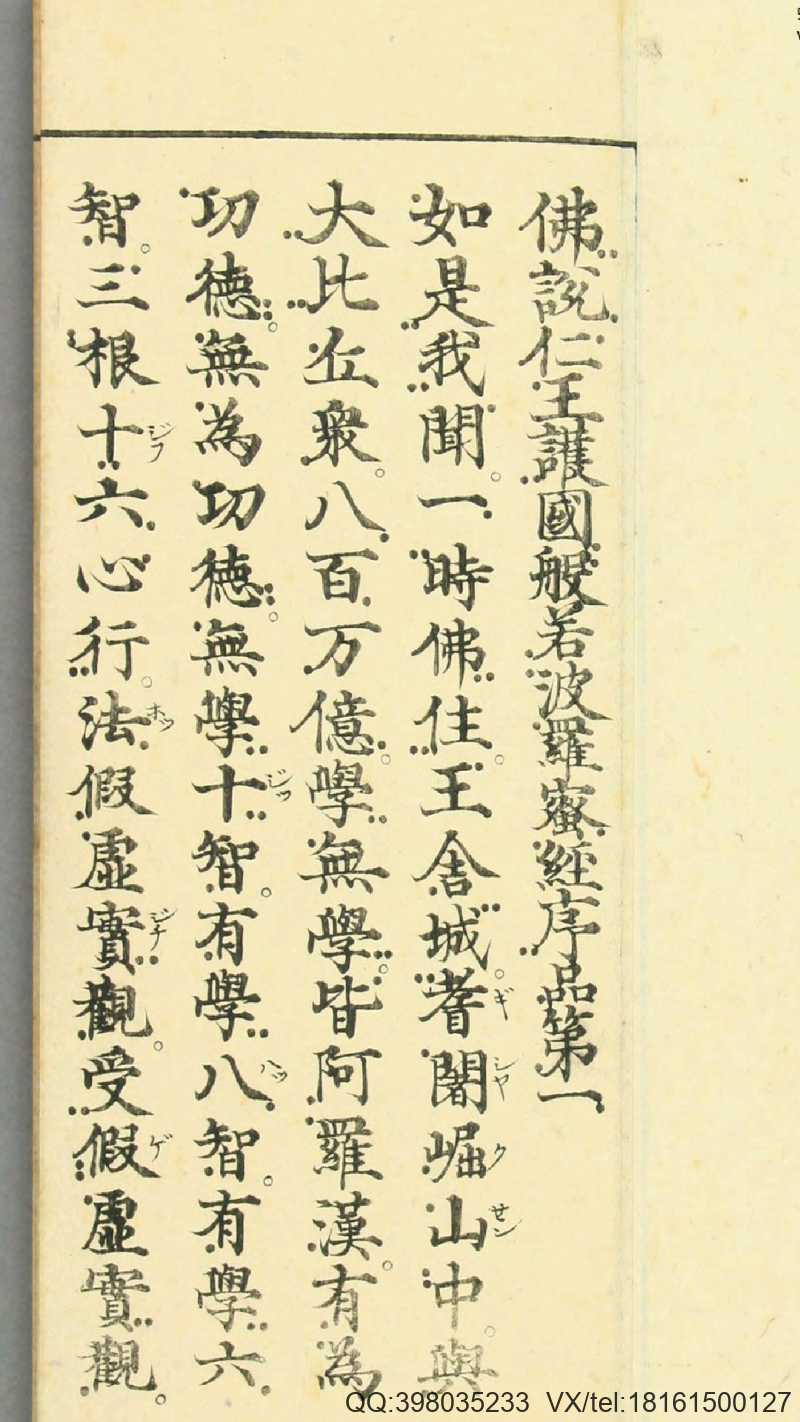 佛說仁王護國般若波羅蜜經序品第一
如是我聞。一時佛住。王舍城。耆闍崛山中。與
大比丘衆。八百万億。學無學。皆阿羅漢。有為
功德。無為功德。無學十智。有學八智。有學六
智。三根十六心行。法假虛實觀。受假虛實觀。
ギシヤクセン
ジツハツ
ジフホツジチゲ
QQ:398035233 VX/tel:18161500127